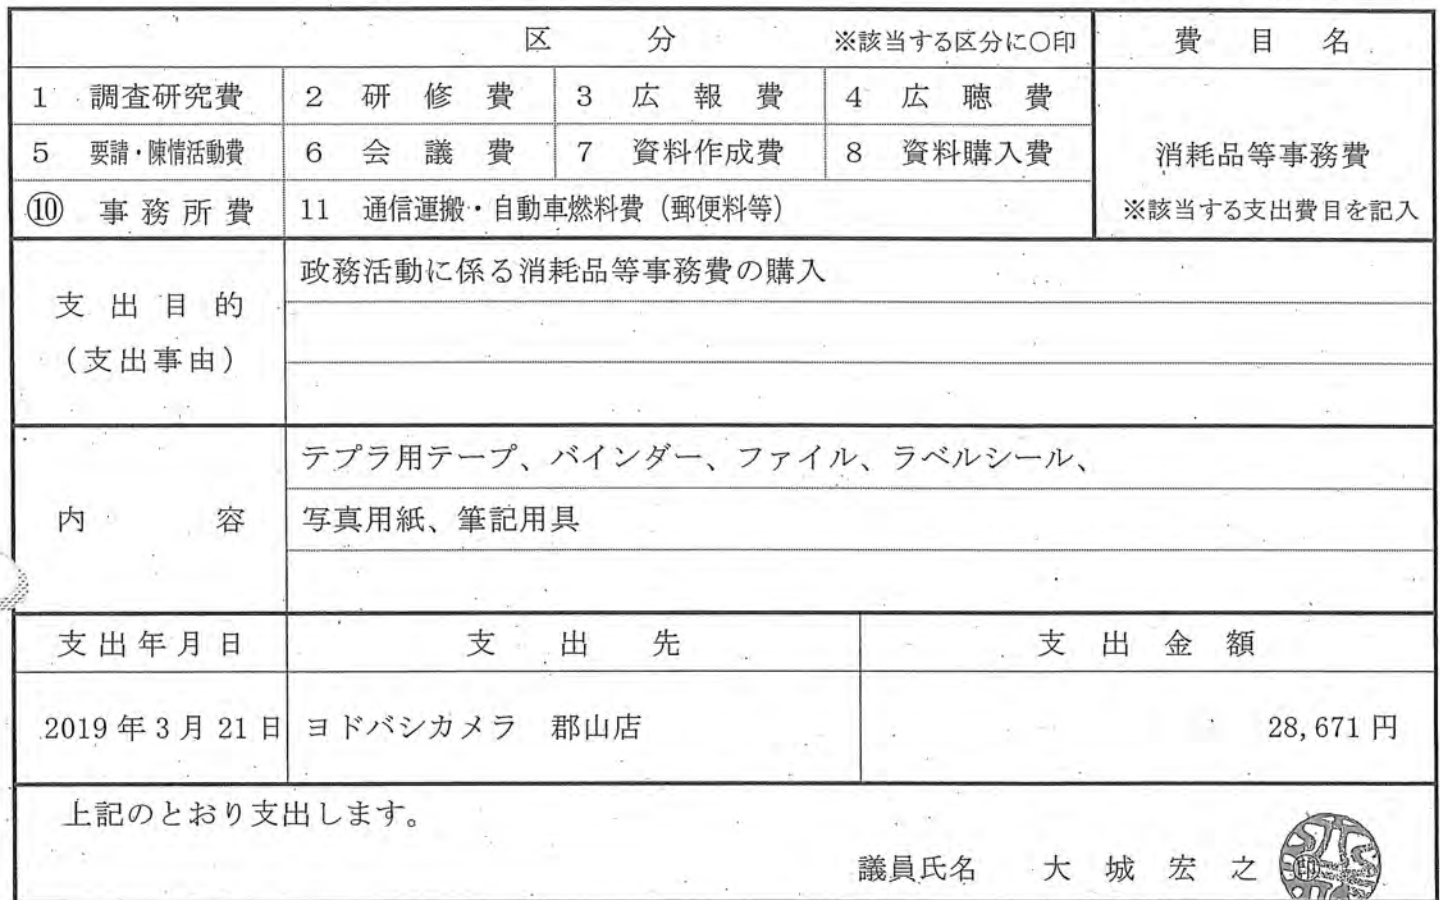 区 分 ※該当する区分に○印 費目名
1 調査研究費 2 研修費 3 広報費 4 広聴費
5 要請・陳情活動費 6 会議費 7 資料作成費 8 資料購入費 消耗品等事務費
⑩ 事務所費 11 通信運搬・自動車燃料費（郵便料等） ※該当する支出費目を記入
支出目的
（支出事由）
政務活動に係る消耗品等事務費の購入
内容
テプラ用テープ、バインダー、ファイル、ラベルシール、
写真用紙、筆記用具
支出年月日 支出先 支出金額
2019年3月21日 ヨドバシカメラ 郡山店 28,671円
上記のとおり支出します。
議員氏名 大城宏之 印